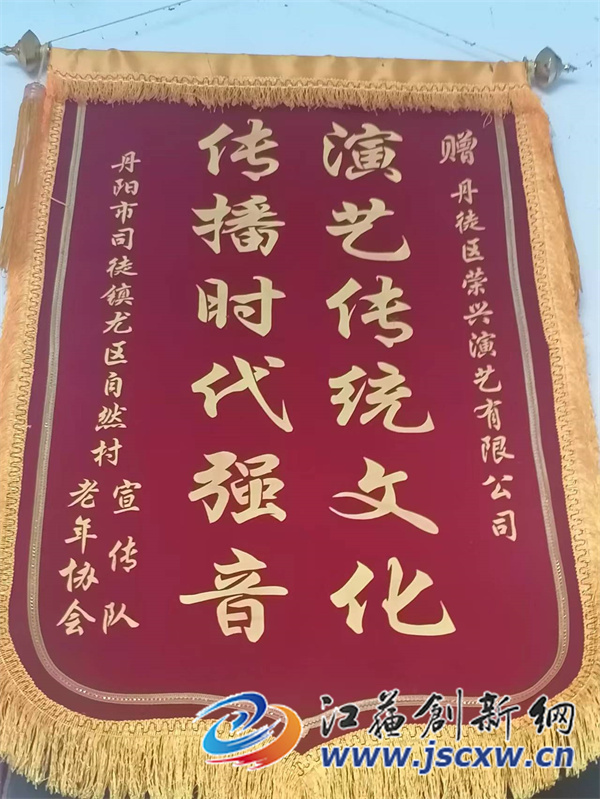 赠 丹徒区荣兴演艺有限公司
演艺传统文化
传播时代强音
丹阳市司徒镇尤区自然村
宣传队
老年协会
江苏创新网
www.jscxw.cn